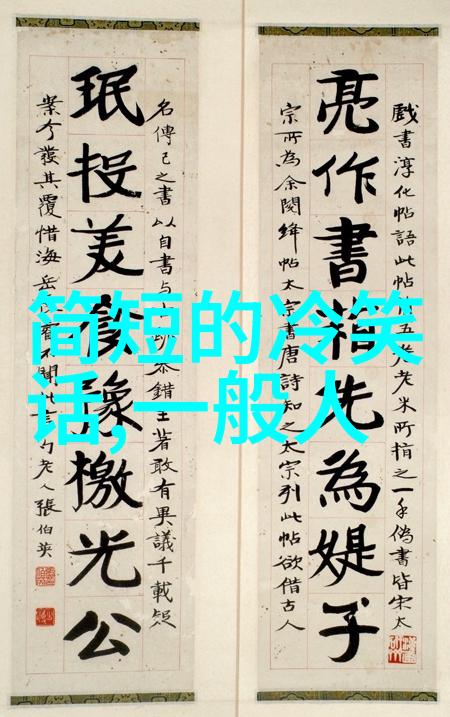 简短的冷笑
话,一般人
亮作書箱先為媞子
戲書淳化帖語此帖五老米所指之一手偽書皆宋太
宗所為余閱絳帖太宗書唐詩知之太宗列此帖欲借古人
珉投美發豫檄光公
名傳己之書以自書與錯王著敢有異議千載疑
案今發其覆惜海岳不聞老人張伯英